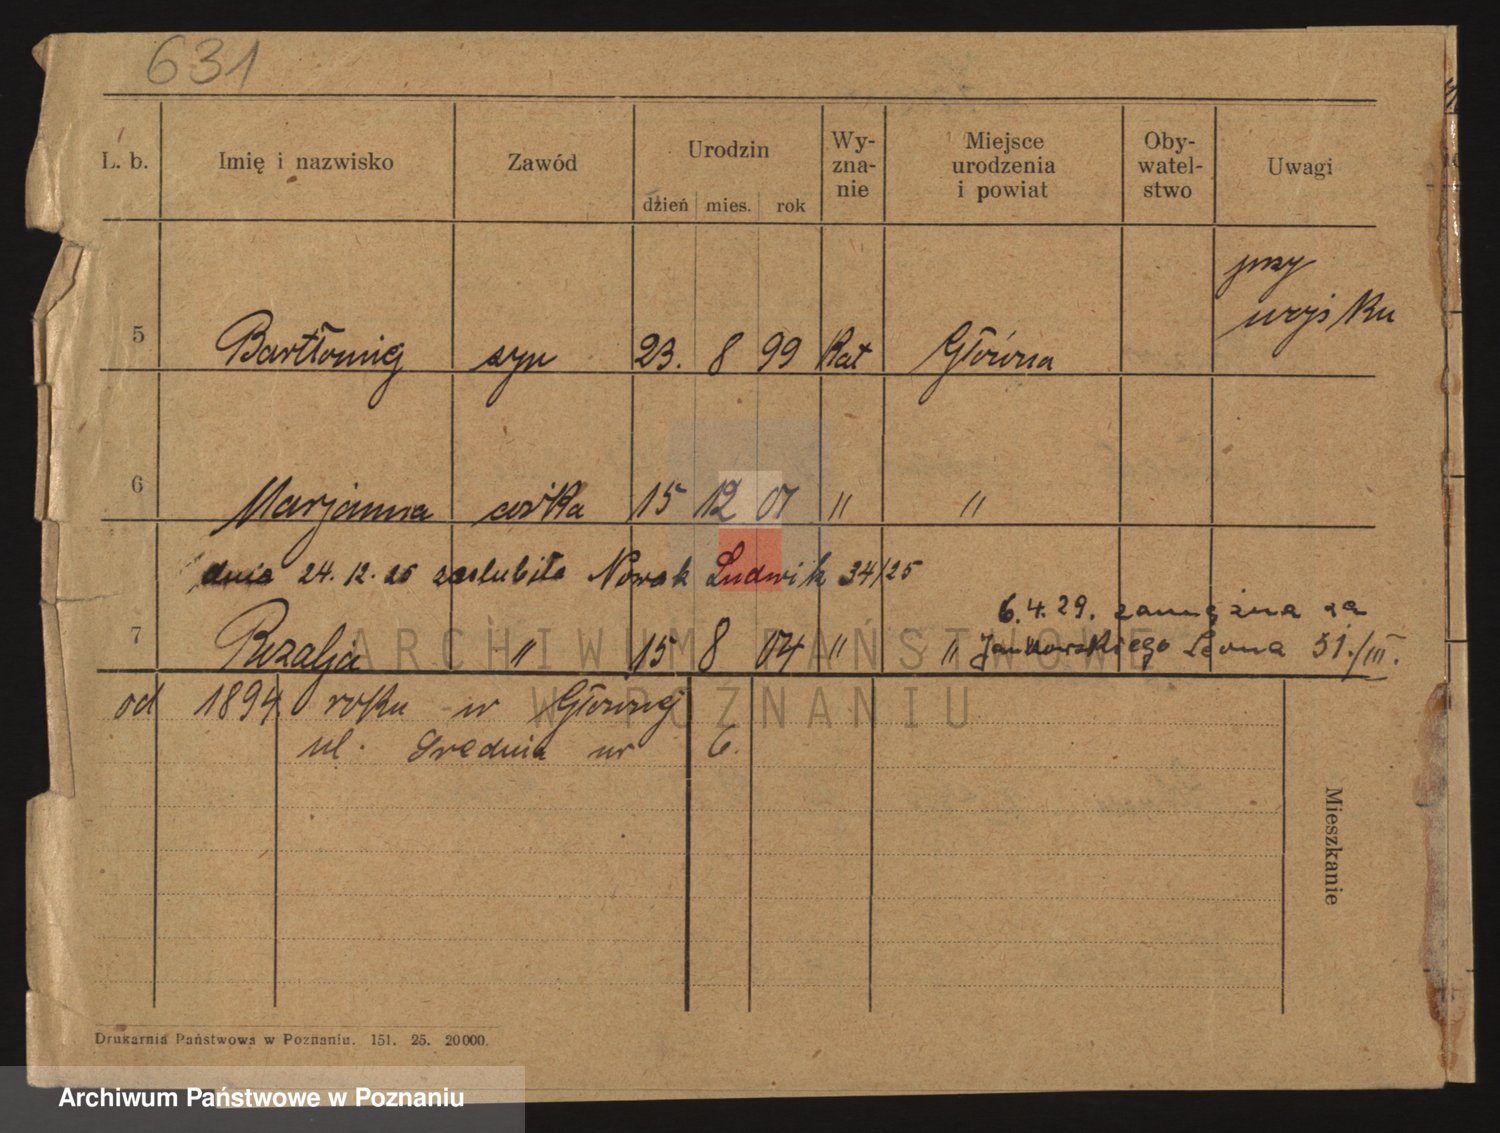 631
L. b. Imię i nazwisko Zawód Urodzin Wy- Miejsce Oby- Uwagi
zna- urodzenia watel-
nie i powiat stwo
dzień mies. rok
przy
wojsku
5 Bartłomiej syn 23. 8 99 Kat Główna
6 Marjanna córka 15 12 01 " "
dnia 24. 12. 25 zaślubiła Nowak Ludwik 34/25
6.4.29. zamężna za
7 Rozalja " 15 8 04 " " Jankowskiego Leona 51./III.
od 1894 roku w Głównej
ul. Srednia nr 6.
Mieszkanie
Drukarnia Państwowa w Poznaniu. 151. 25. 20000.
ARCHIWUM PAŃSTWOWE
W POZNANIU
Archiwum Państwowe w Poznaniu